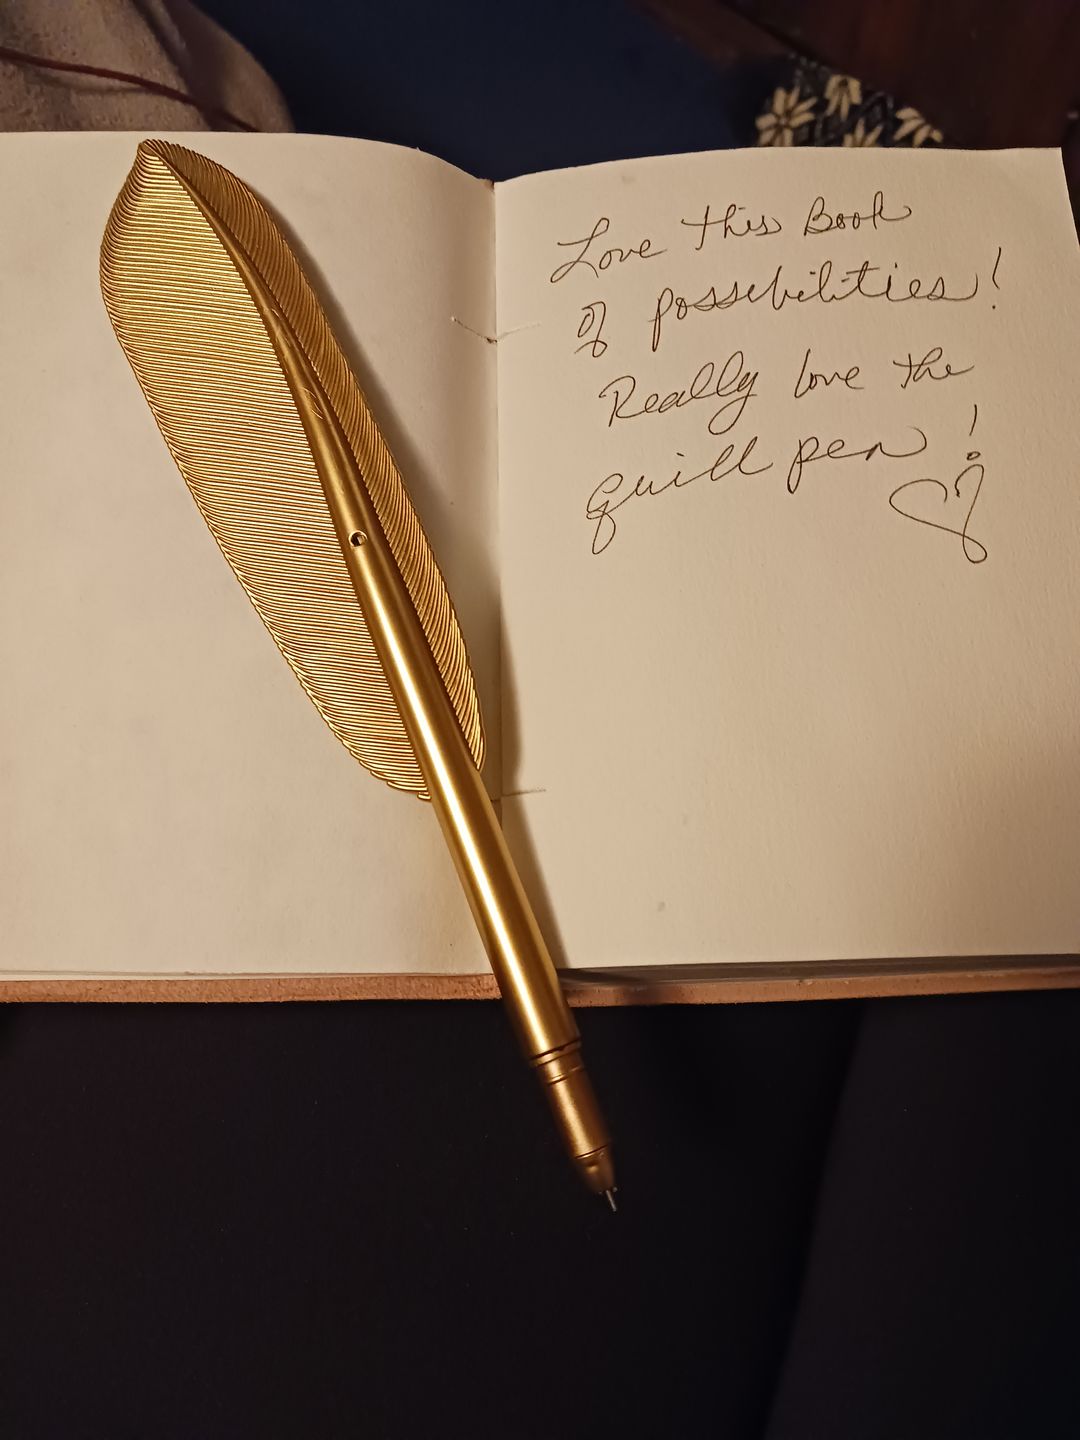 Love this Book
of possebilities!
Really love the
quill pen!